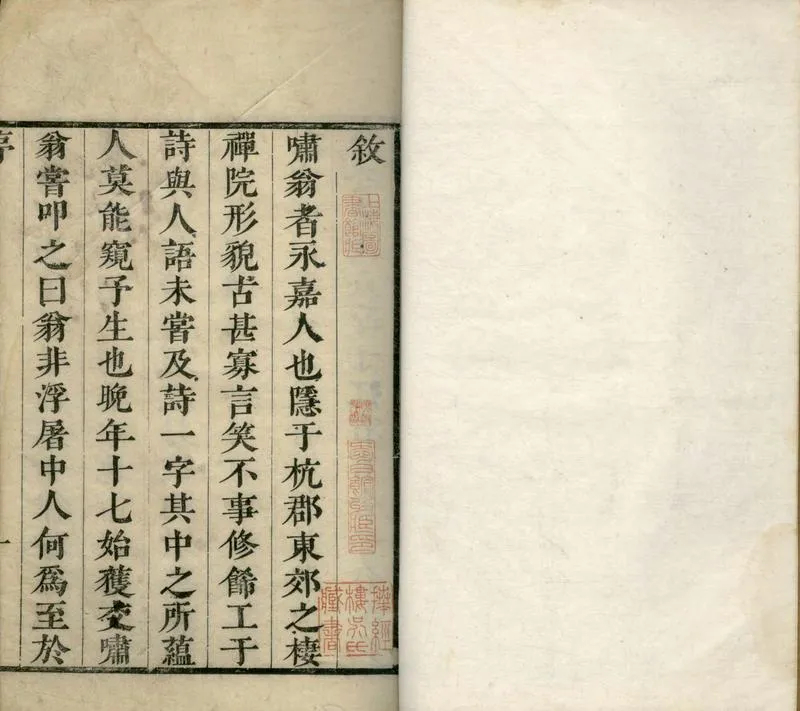 敘
上海圖書館藏
拜經樓吳氏藏書
嘯翁者永嘉人也隱于杭郡東郊之棲
禪院形貌古甚寡言笑不事修餙工于
詩與人語未嘗及詩一字其中之所蘊
人莫能窺予生也晚年十七始獲交嘯
翁嘗叩之曰翁非浮屠中人何爲至於
一